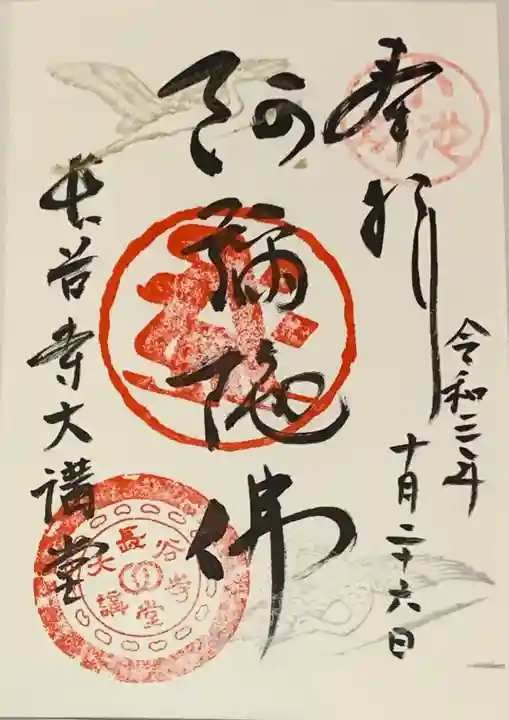 奉拝
小池坊
令和三年
十月二十六日
阿彌陀佛
長谷寺大講堂
長谷寺
大講堂